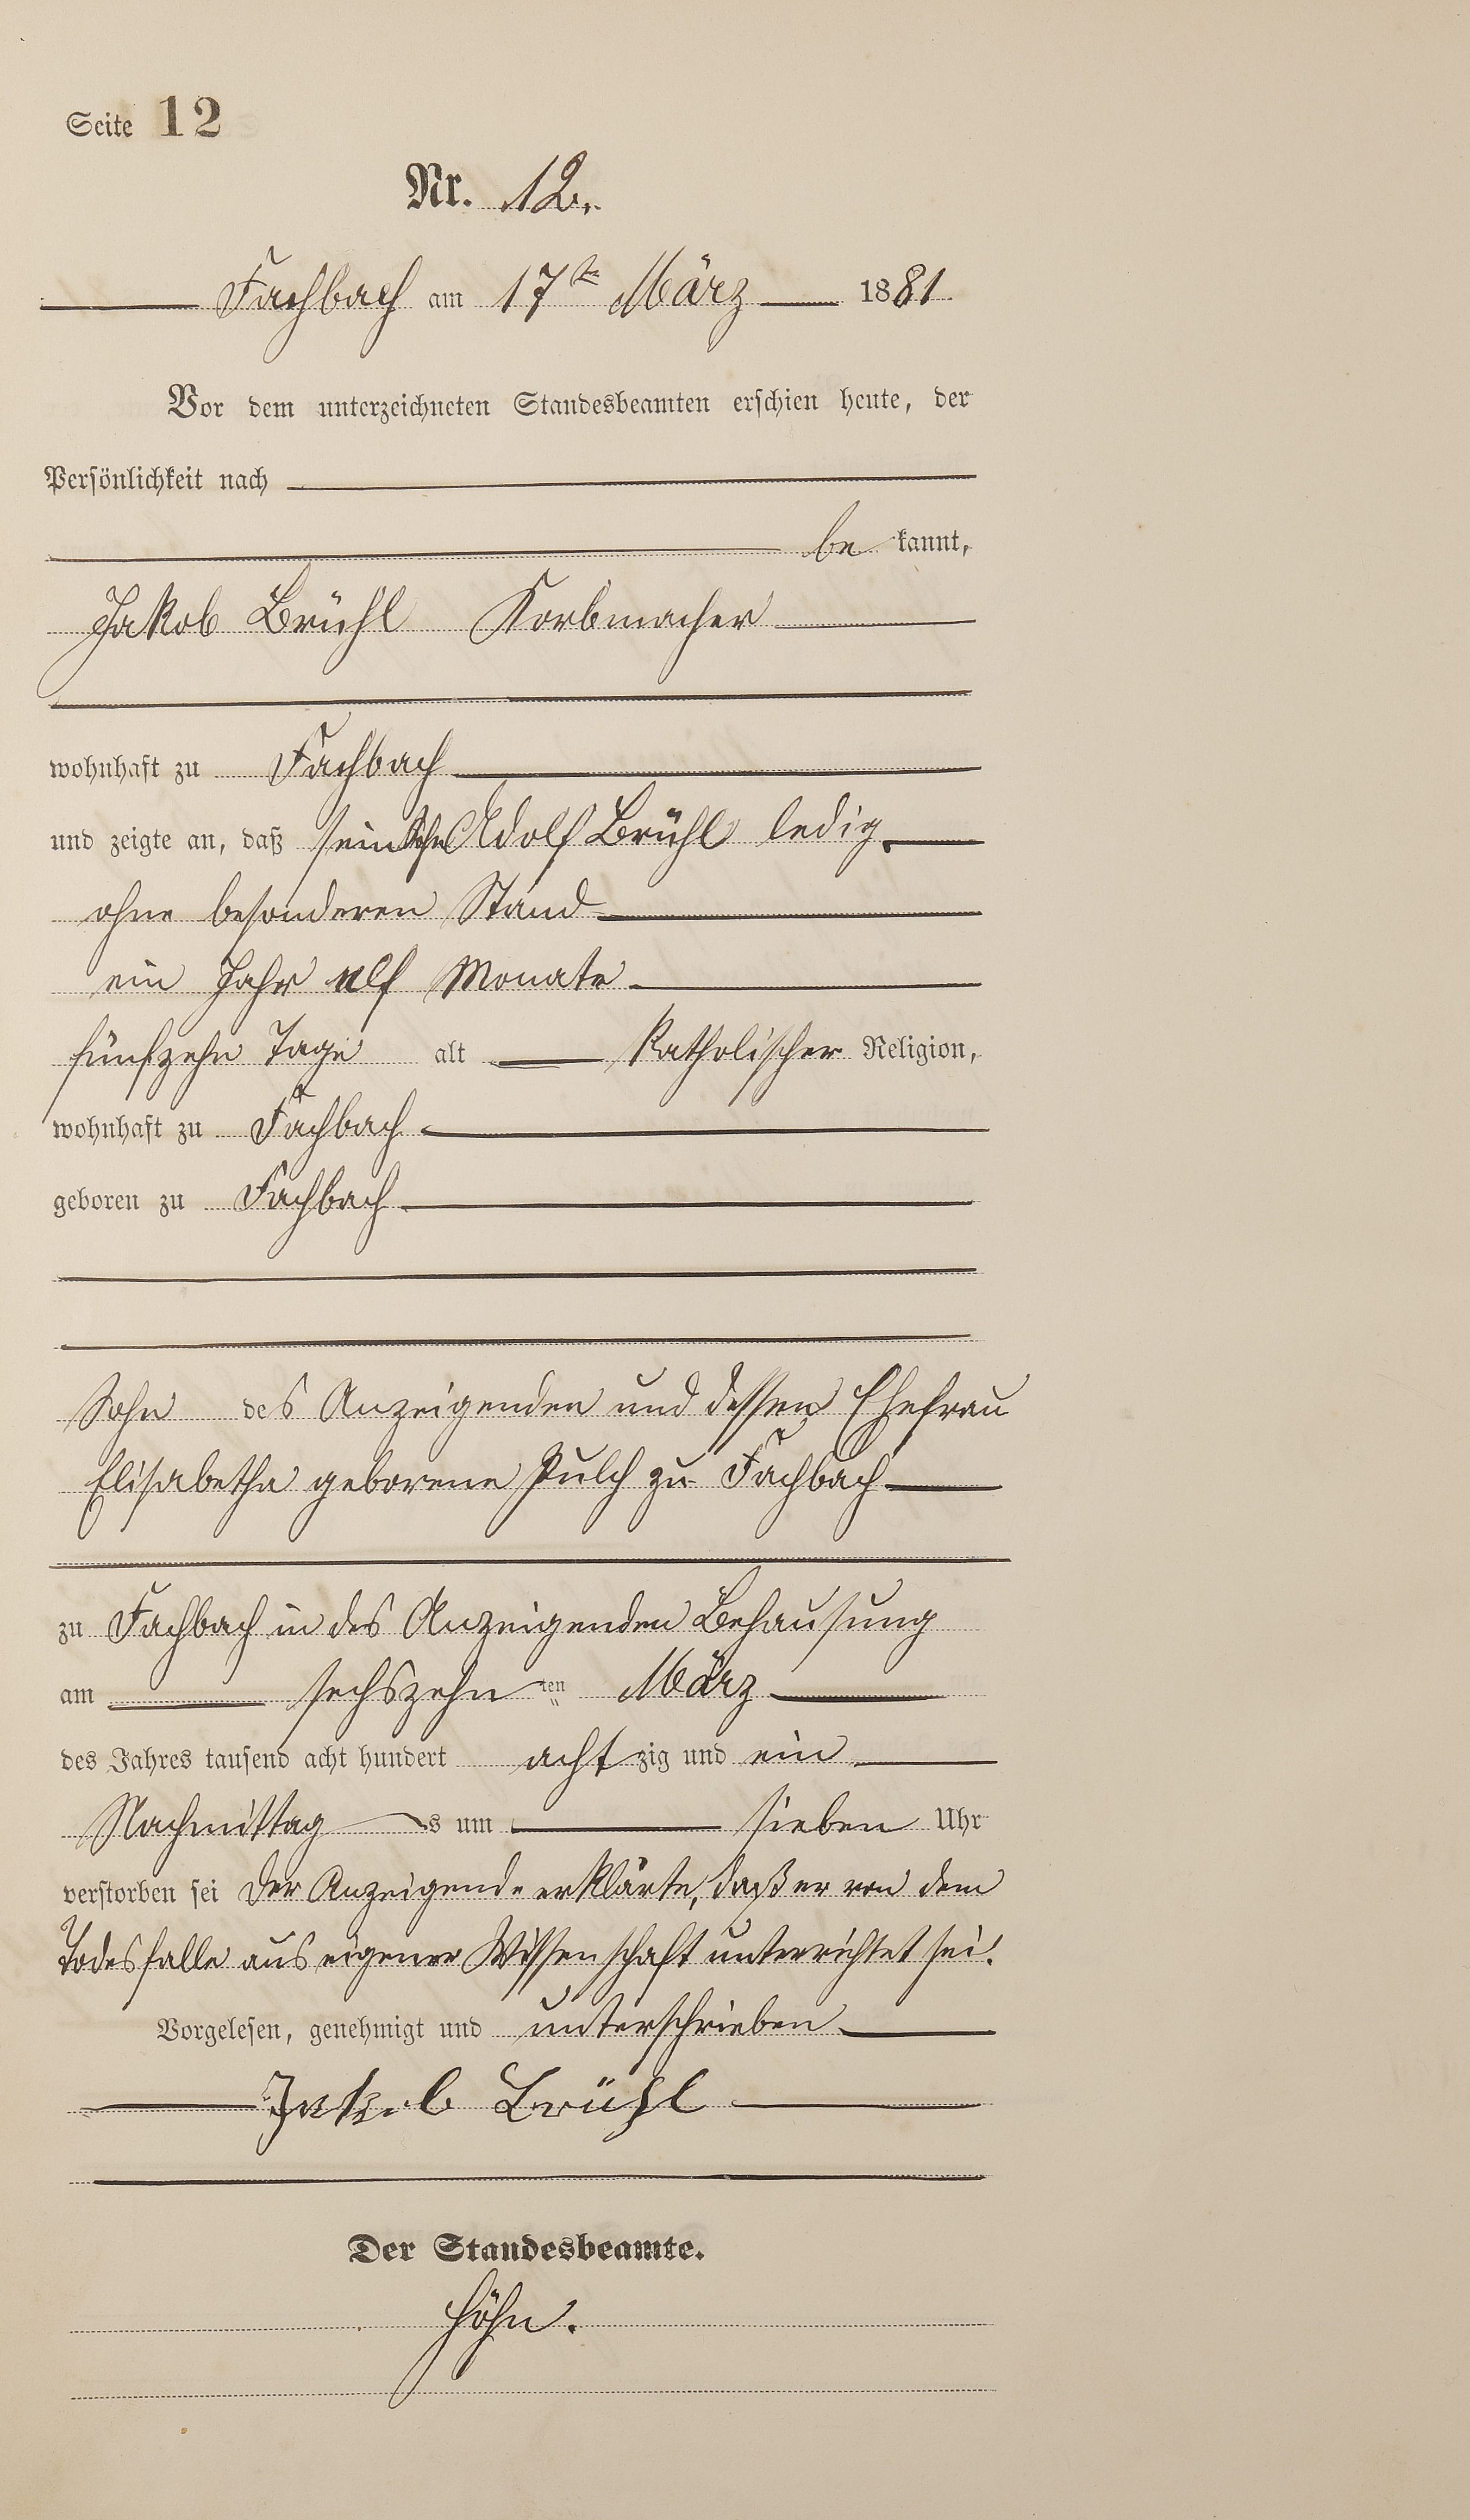 Seite 12
Nr. 12.
Fachbach am 17te März 1881.
Vor dem unterzeichneten Standesbeamten erschien heute, der
Persönlichkeit nach
be kannt,
Jakob Brühl Korbmacher
wohnhaft zu Fachbach
und zeigte an, daß sein Sohn Adolf Brühl ledig,
ohne besonderen Stand
ein Jahr elf Monate
fünfzehn Tage alt katholischer Religion,
wohnhaft zu Fachbach
geboren zu Fachbach
Sohn des Anzeigenden und dessen Ehefrau
Elisabetha geborene Pulch zu Fachbach
zu Fachbach in des Anzeigenden Behausung
am sechszehn ten März
des Jahres tausend acht hundert acht zig und ein
Nachmittag s um sieben Uhr
verstorben sei Der Anzeigende erklärte, daß er von dem
Todesfalle aus eigener Wissenschaft unterrichtet sei.
Vorgelesen, genehmigt und unterschrieben
Jakob Brühl
Der Standesbeamte.
Höhn.